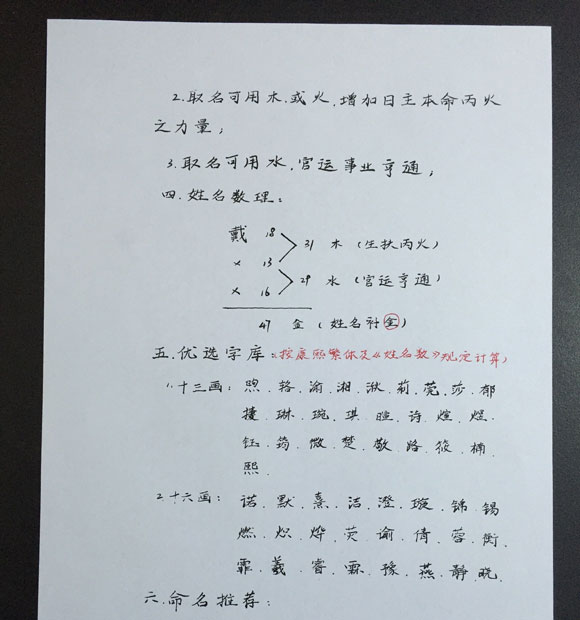 2.取名可用木.或火,增加日主本命丙火
之力量;
3.取名可用水,官运事业亨通;
四.姓名数理:
戴 18
31 木(生扶丙火)
× 13
29 水(官运亨通)
× 16
47 金(姓名补金)
五.优选字库:按康熙繁体及《姓名数》规定计算)
1,十三画:煦.辂.渝.湘.湫.莉.莞.莎.郁
琳.琬.琪.暄.诗.煊.煜.
钰.筠.微.楚.敬.路.筱.楠.
熙.
2十六画:诺.默.熹.洁.澄.璇.锦.锡
燃.炽.烨.荧.谕.倩.蓉.衡.
霏.羲.睿.霖.豫.燕.静.晓.
六.命名推荐: